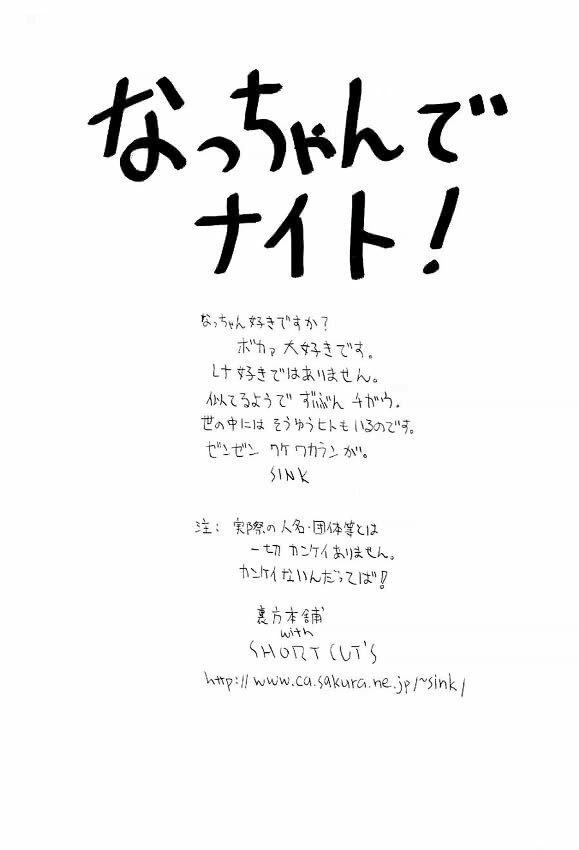 なっちゃんで
ナイト!
なっちゃん好きですか?
ボカァ 大好きです。
レナ好きではありません。
似てるようで ずいぶん チガウ.
世の中には そうゆうヒトもいるのです。
ゼンゼン ワケワカランが。
SINK
注: 実際の人名・団体等とは
一切 カンケイありません。
カンケイないんだってば!
裏方本舗
with
SHORT CUT'S
http://www.ca.sakura.ne.jp/~sink/